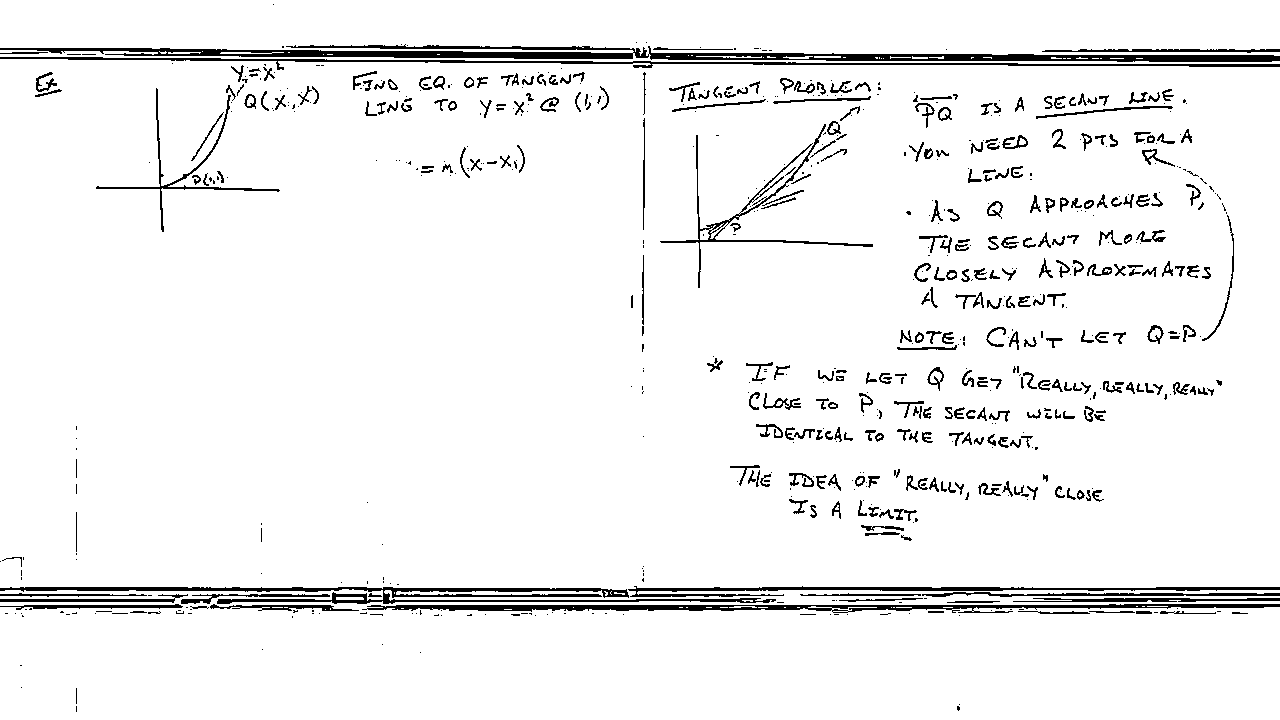 Ex
Y=X²
Q(X,X²)
P(1,1)
FIND EQ. OF TANGENT
LINE TO Y=X² @ (1,1)
= m(X-X₁)
TANGENT PROBLEM:
Q
P
PQ IS A SECANT LINE.
·YOU NEED 2 PTS FOR A
LINE.
· AS Q APPROACHES P,
THE SECANT MORE
CLOSELY APPROXIMATES
A TANGENT.
NOTE: CAN'T LET Q=P
* IF WE LET Q GET "REALLY, REALLY, REALLY"
CLOSE TO P, THE SECANT WILL BE
IDENTICAL TO THE TANGENT.
THE IDEA OF "REALLY, REALLY" CLOSE
IS A LIMIT.